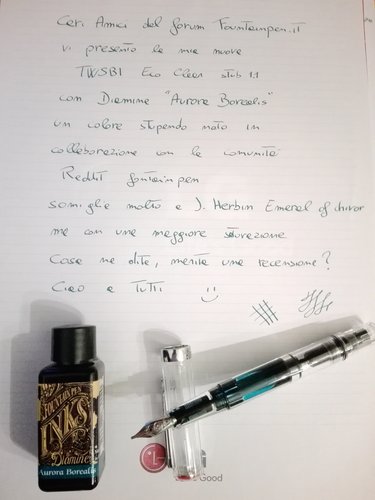 Cari Amici del forum Fountainpen.it
vi presento la mia nuova
TWSBI Eco Clear stub 1.1
con Diamine "Aurora Borealis"
un colore stupendo nato in
collaborazione con la comunità
Reddit fontainpen
somiglia molto a J. Herbin Emerel of chivor
ma con una maggiore saturazione
Cosa ne dite, merita una recensione?
Ciao a Tutti :)
FOUNTAIN PEN
INKS
Diamine
Aurora Borealis
LG
Good